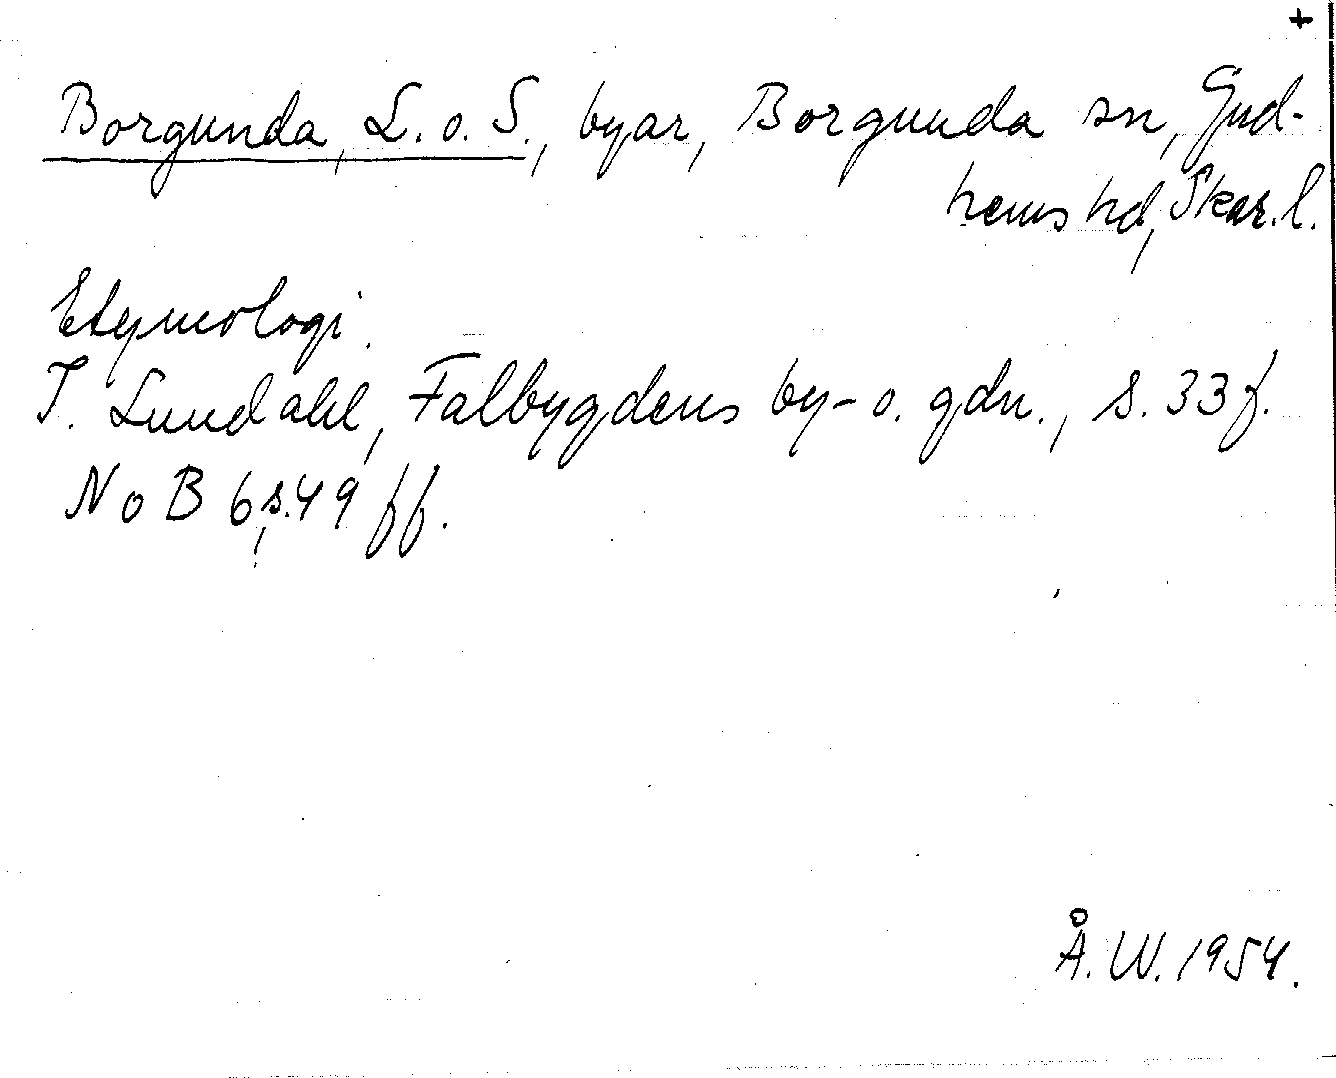 +
Borgunda, L. o. S., byar, Borgunda sn, Gud-
hems hd, Skar. l.
Etymologi.
I. Lundahl, Falbygdens by- o. gdn., s. 33 f.
NoB 6, s. 49 ff.
Å. W. 1954.